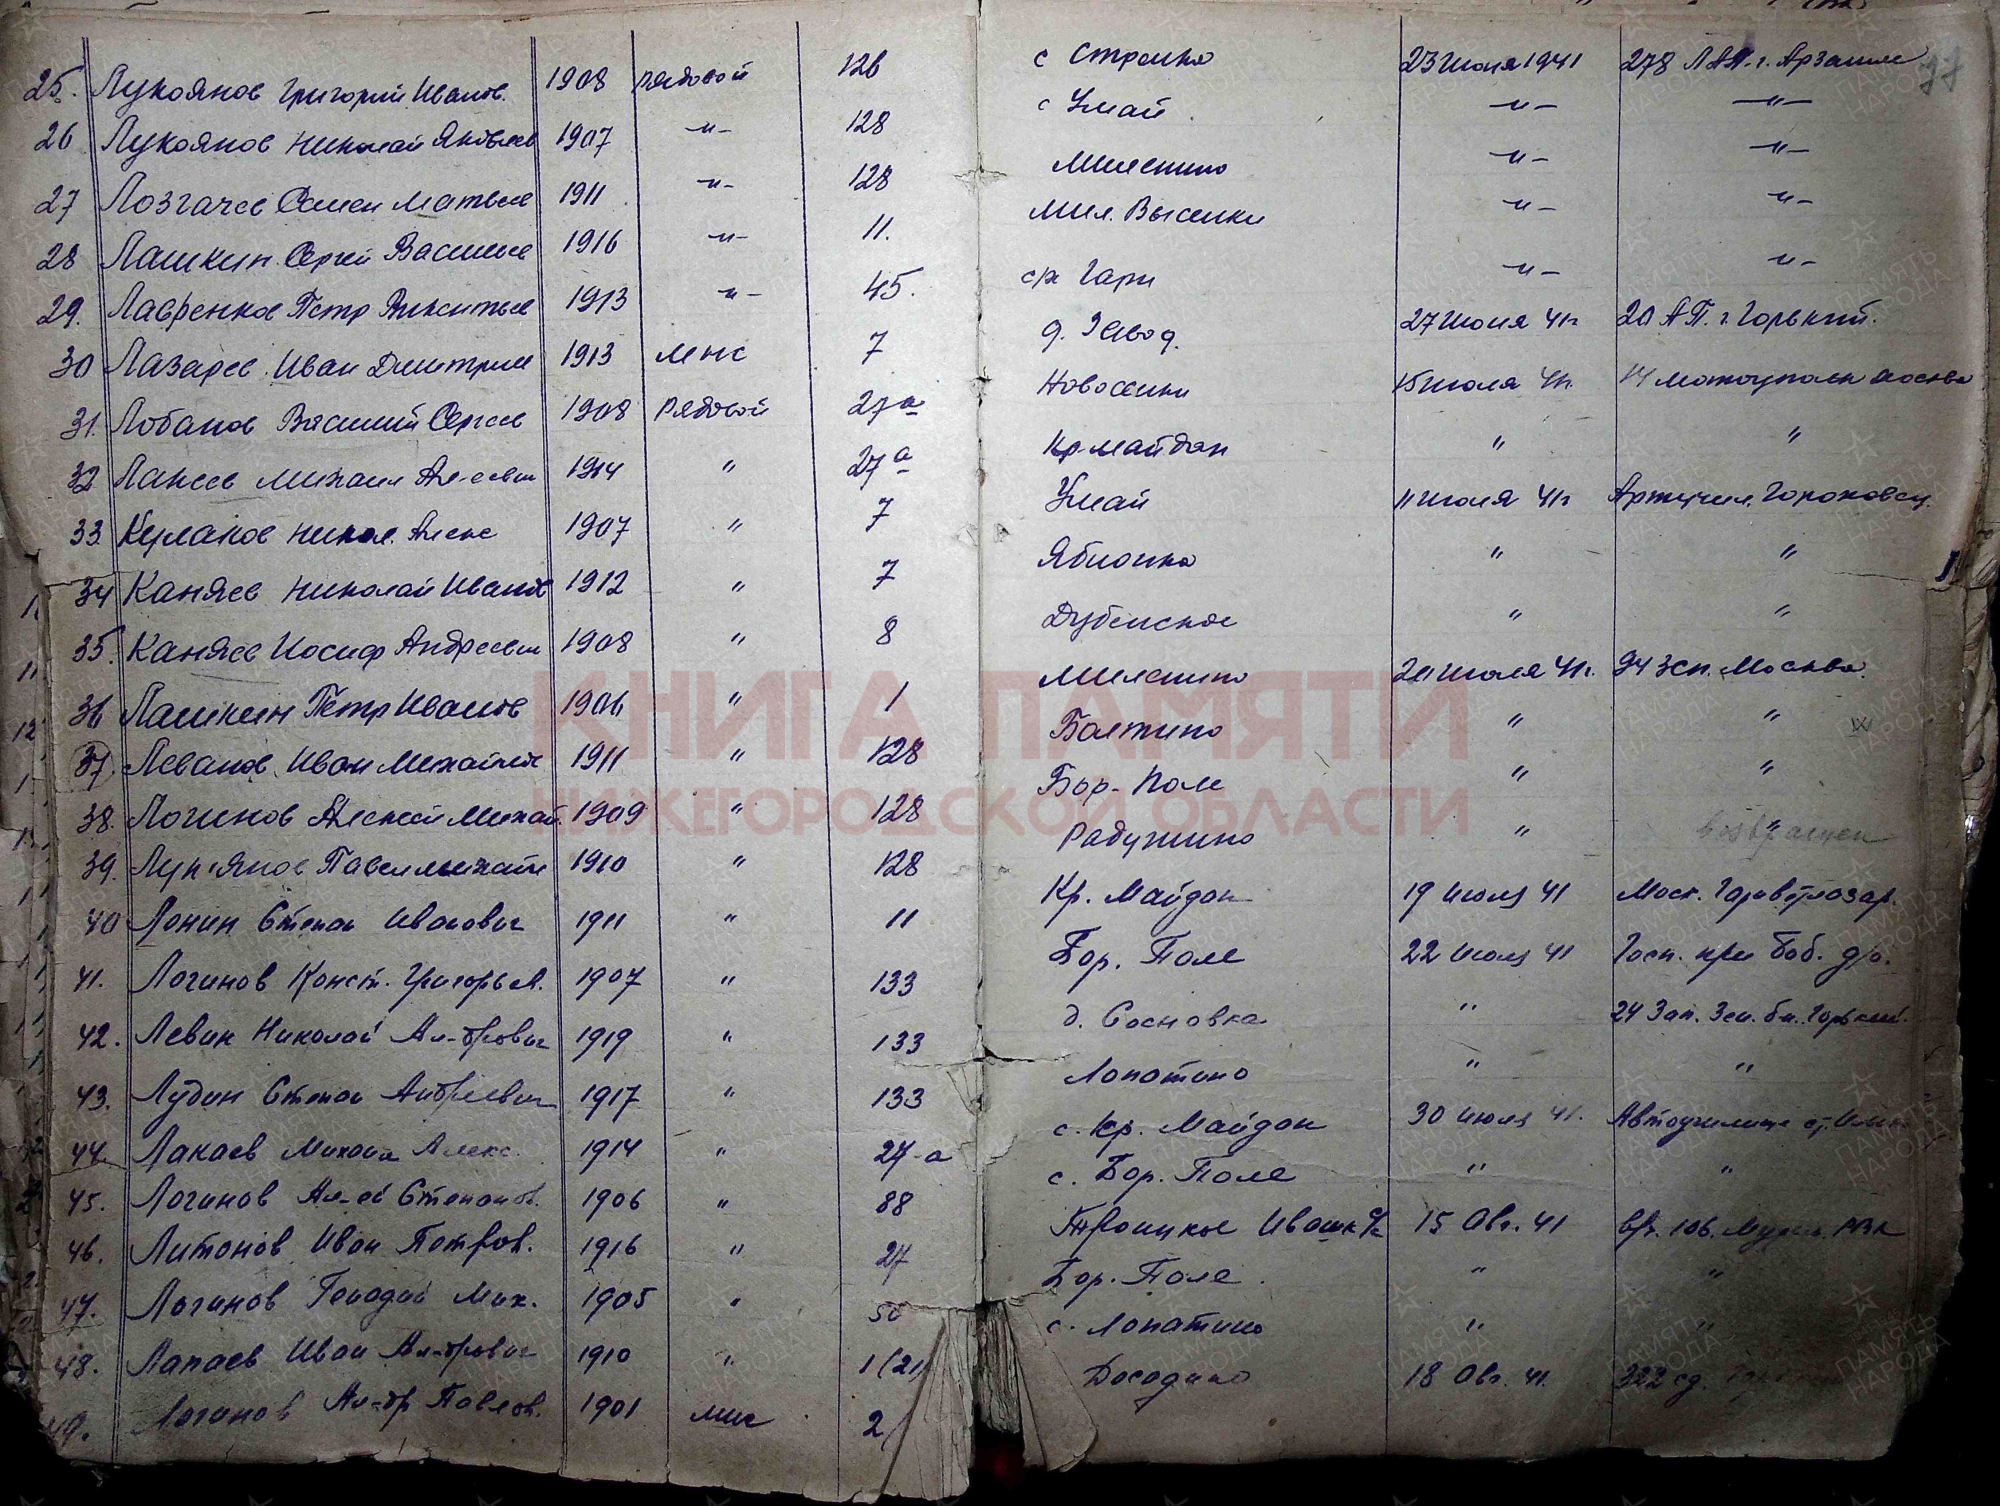 25. Лукоянов Григорий Иванов. 1908 рядовой 126 с Стрелка 23 июня 1941 278 ЛАП. г. Арзамас
26 Лукоянов Николай Яковлев 1907 -"- 128 с Умай -"- -"-
27 Лозгачев Семен Матвеев 1911 -"- 128 Милетино -"- -"-
28 Лашкин Сергей Васильев 1916 -"- 11. Мил. Выселки -"- -"-
29. Лавренков Петр Никитьев 1913 -"- 45. с/х Гари -"- -"-
30 Лазарев Иван Дмитриев 1913 мнс 7 д. Завод. 27 июня 41г 20 АП. г. Горький.
31. Лобанов Василий Сергеев 1908 Рядовой 27а Новоселки 15 июля 41г. 14 мотоцполк Москва
32 Лакеев Михаил Ал-еевич 1914 " 27а Кр-майдан " "
33. Куланов Никол. Алекс 1907 " 7 Умай 11 июля 41г Артучил. Гороховец.
34 Каняев Николай Иванов 1912 " 7 Яблонка " "
35. Каняев Иосиф Андреевич 1908 " 8 Дубенское " "
36 Лашкин Петр Иванов 1906 " 1 Милетино 20 июля 41г. 94 зсп. Москва.
37. Леванов Иван Михайлов 1911 " 128 Болтино " "
38. Логинов Алексей Михай. 1909 " 128 Бор-Поле " "
39. Лукиянов Павел михайл 1910 " 128 Радужино " " возвращен
40 Лонин Степан Иванович 1911 " 11 Кр. Майдан 19 июля 41
41. Логинов Конст. Григорьев. 1907 " 133 Бор. Поле 22 июля 41 Госп. при Боб. д/о.
42. Левин Николай Ал-дрович 1919 " 133 д. Сосновка " 24 Зап. Зен. бн. Горький.
43. Лудин Степан Андреевич 1917 " 133 Лопатино " "
44. Лакаев Михаил Алекс. 1914 " 27-а с. Кр. Майдан 30 июля 41. Автоучилище
45. Логинов Ал-ей Степанов. 1906 " 88 с. Бор. Поле " "
46. Литонов Иван Петров. 1916 " 27 Троицкое 15 Авг. 41
47. Логинов Генадий Мих. 1905 " 50 Бор. Поле. " "
48. Лапаев Иван Ал-дрович 1910 " 1 (21) с. Лопатино " "
49. Логинов Ал-др Павлов. 1901 мнс 2 Досадино 18 Авг. 41. 322 сд.
77
КНИГА ПАМЯТИ
НИЖЕГОРОДСКОЙ ОБЛАСТИ
ПАМЯТЬ НАРОДА